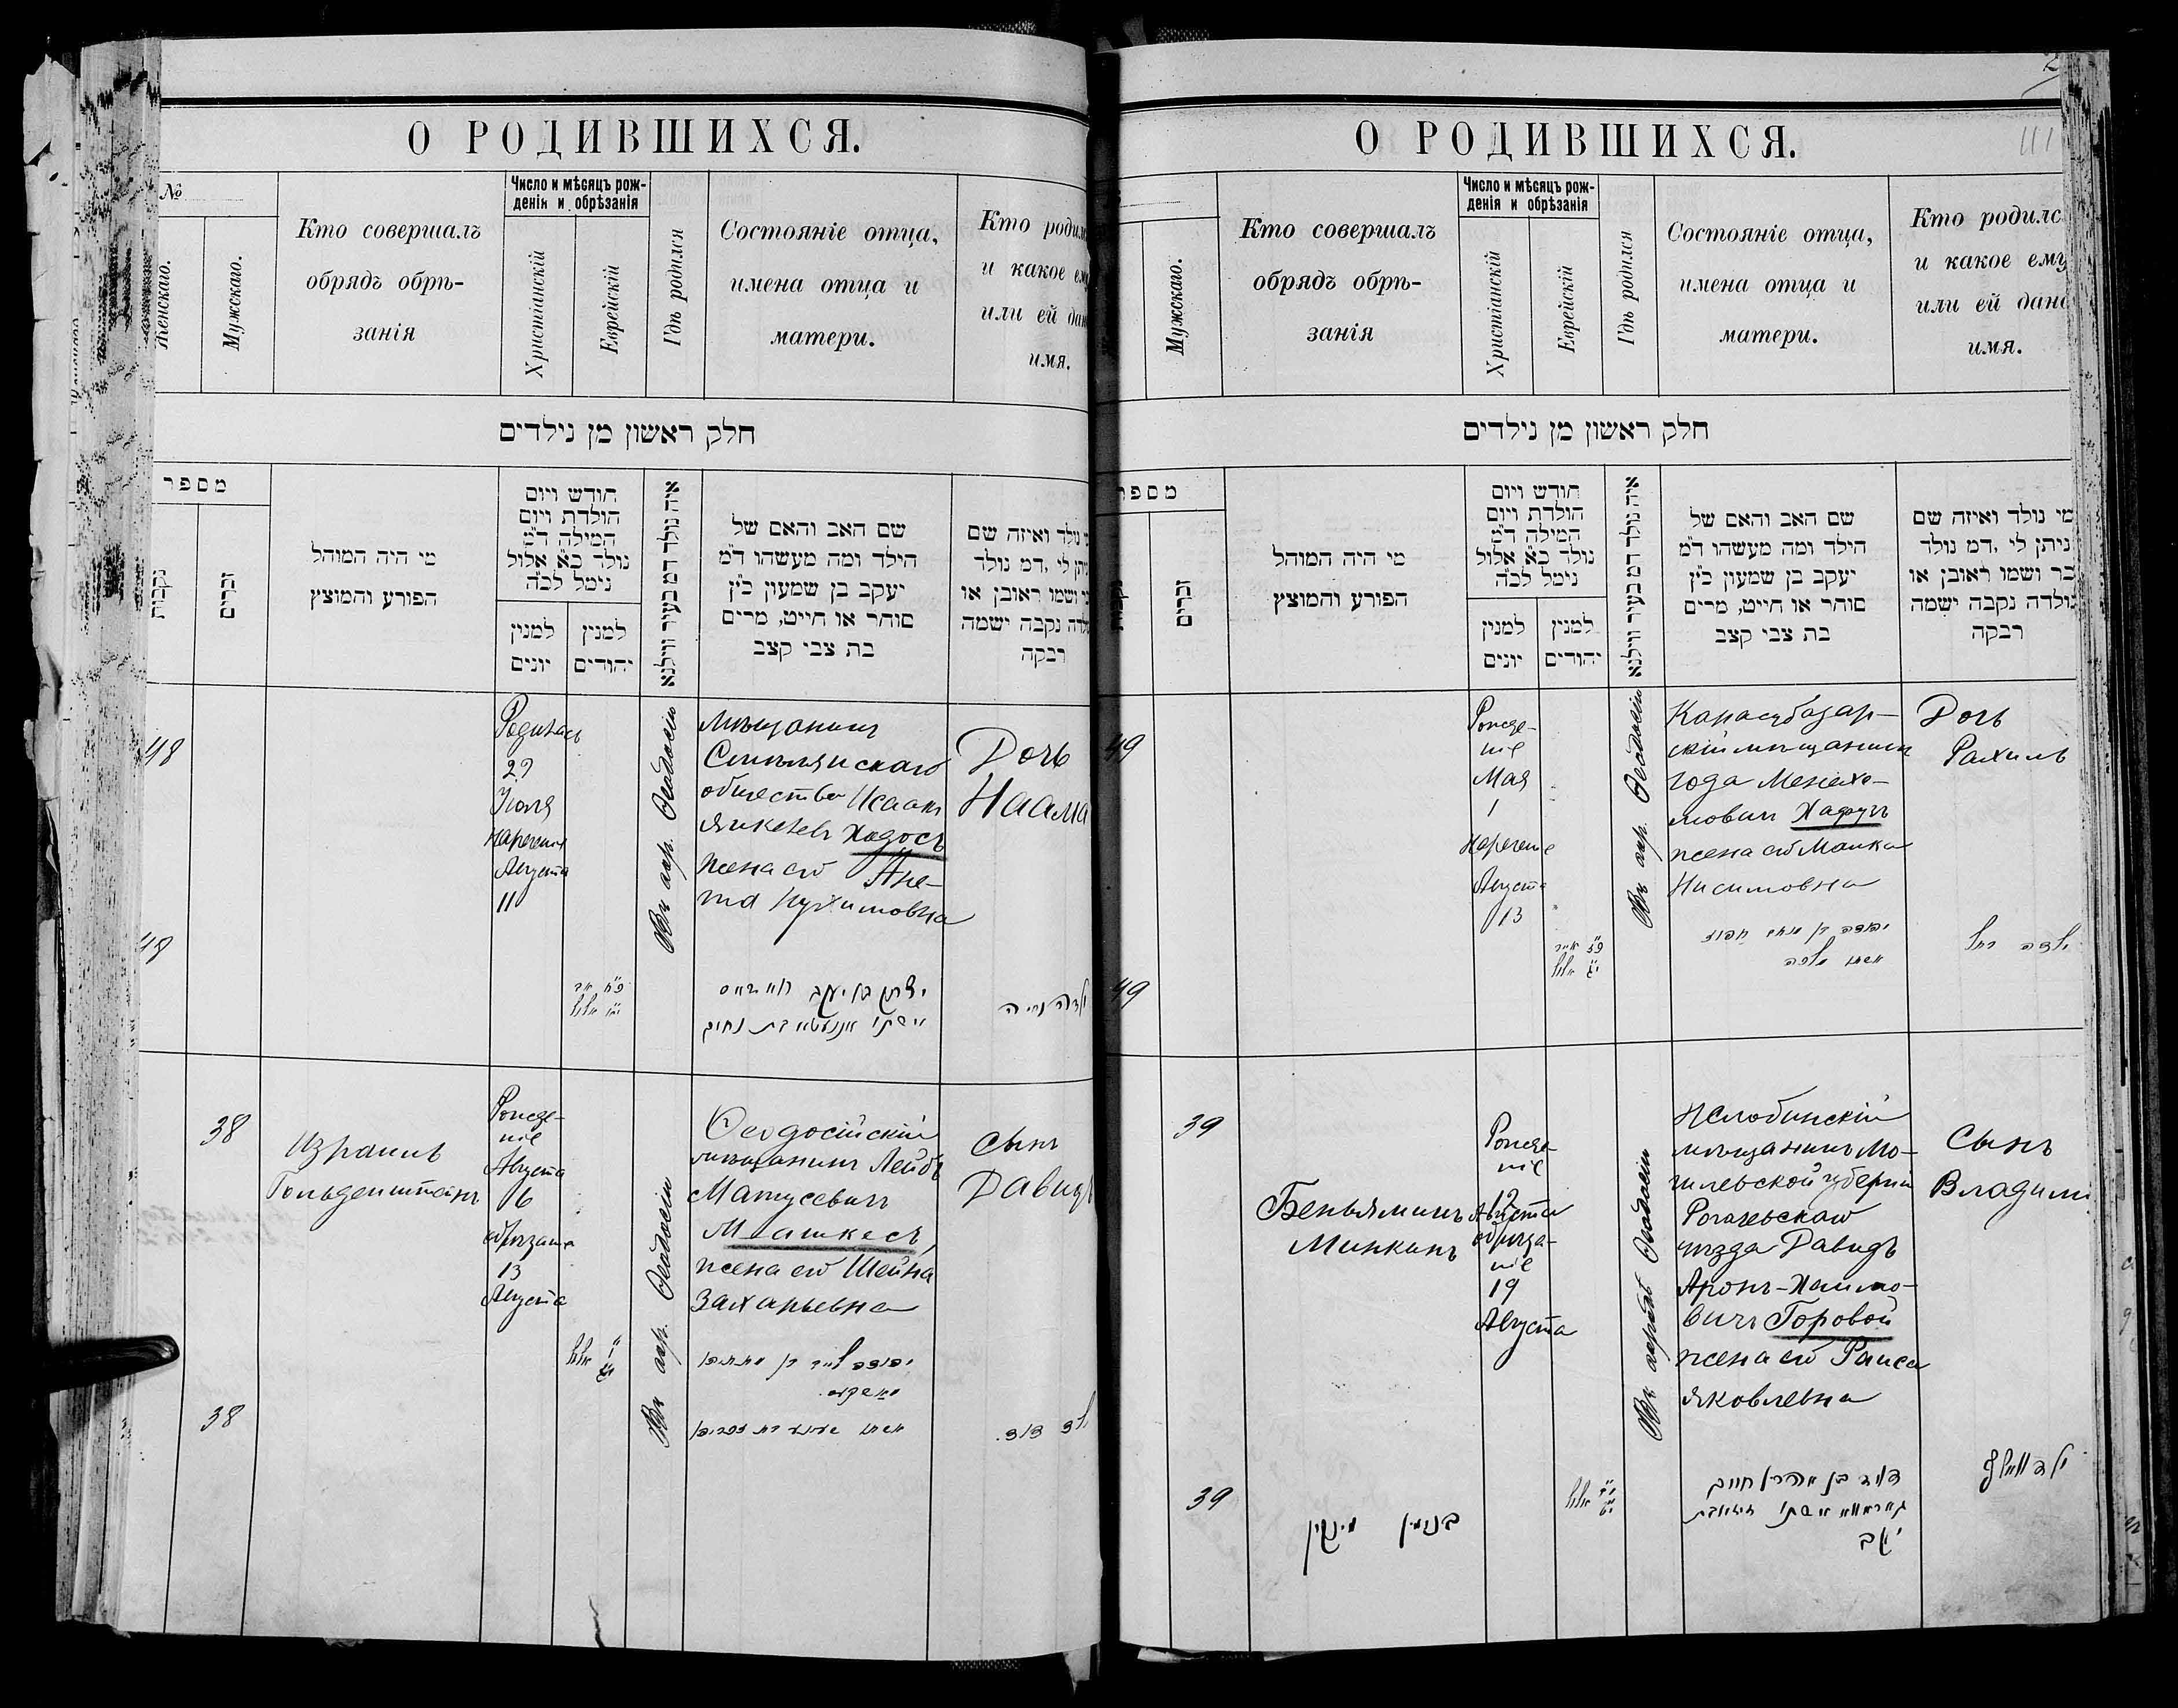 О РОДИВШИХСЯ.
№
Женскаго.
Мужскаго.
Кто совершалъ
обрядъ обрѣ-
занія
Число и мѣсяцъ рож-
денія и обрѣзанія
Христіанскій
Еврейскій
Гдѣ родился
Состояніе отца,
имена отца и
матери.
Кто родил
и какое ем
или ей дан
имя.
חלק ראשון מן נילדים
מספר
נקבות
זכרים
מי היה המוהל
הפורע והמוצץ
חודש ויום
הולדת ויום
המילה ד״מ
נולד כ״א אלול
נימל לכ״ה
למנין
יונים
למנין
יהודים
איה נולד דמ בעיר ווילנא
שם האב והאם של
הילד ומה מעשהו ד״מ
יעקב בן שמעון כ״ץ
סוחר או חייט, מרים
בת צבי קצב
נולד ואיזה שם
ניתן לי ,דמ נולד
ושמו ראובן או
נולדה נקבה ישמה
רבקה
48
Родилась
29
Іюля
нареченіе
Августа
11
Въ гор. Ѳеодосіи
мѣщанинъ
Смѣлянскаго
общества Исаакъ
Янкелевъ Хадосъ
жена его Ане-
та Нухимовна
Дочь
Наама
48
יצחק בן יעקב
אשתו אננעטא בת נחום
ילדה נעמה
38
Израиль
Гольденштейнъ
Рожде-
ніе
Августа
6
обрѣзаніе
13
Августа
Въ гор. Ѳеодосіи
Ѳеодосійскій
мѣщанинъ Лейбъ
Матусевичъ
Машкесъ,
жена его Шейна
Захарьевна
Сынъ
Давидъ
38
ילד דוד.
О РОДИВШИХСЯ.
111
Мужскаго.
Кто совершалъ
обрядъ обрѣ-
занія
Число и мѣсяцъ рож-
денія и обрѣзанія
Христіанскій
Еврейскій
Гдѣ родился
Состояніе отца,
имена отца и
матери.
Кто родилс
и какое ему
или ей дано
имя.
חלק ראשון מן נילדים
מספר
נקבות
זכרים
מי היה המוהל
הפורע והמוצץ
חודש ויום
הולדת ויום
המילה ד״מ
נולד כ״א אלול
נימל לכ״ה
למנין
יונים
למנין
יהודים
איה נולד דמ בעיר ווילנא
שם האב והאם של
הילד ומה מעשהו ד״מ
יעקב בן שמעון כ״ץ
סוחר או חייט, מרים
בת צבי קצב
מי נולד ואיזה שם
ניתן לי ,דמ נולד
זכר ושמו ראובן או
נולדה נקבה ישמה
רבקה
49
Рожде-
ніе
Мая
1
Нареченіе
Августа
13
Въ гор. Ѳеодосіи
Карасубазар-
скій мѣщанинъ
Менахе-
мовичъ Хафузъ
жена его Малка
Нисимовна
Дочь
Рахиль
49
ילדה רחל
39
Беньяминъ
Минкинъ
Рожде-
ніе
12
Августа
обрѣза-
ніе
19
Августа
Въ городѣ Ѳеодосіи
Жлобинскій
мѣщанинъ Мо-
гилевской губерніи
Рогачевскаго
уѣзда Давидъ
Аронъ-Хаимо-
вичъ Горовой
жена его Раиса
Яковлевна
Сынъ
Владими
39
בנימין מינקין
דוד בן אהרן חיים
יעקב